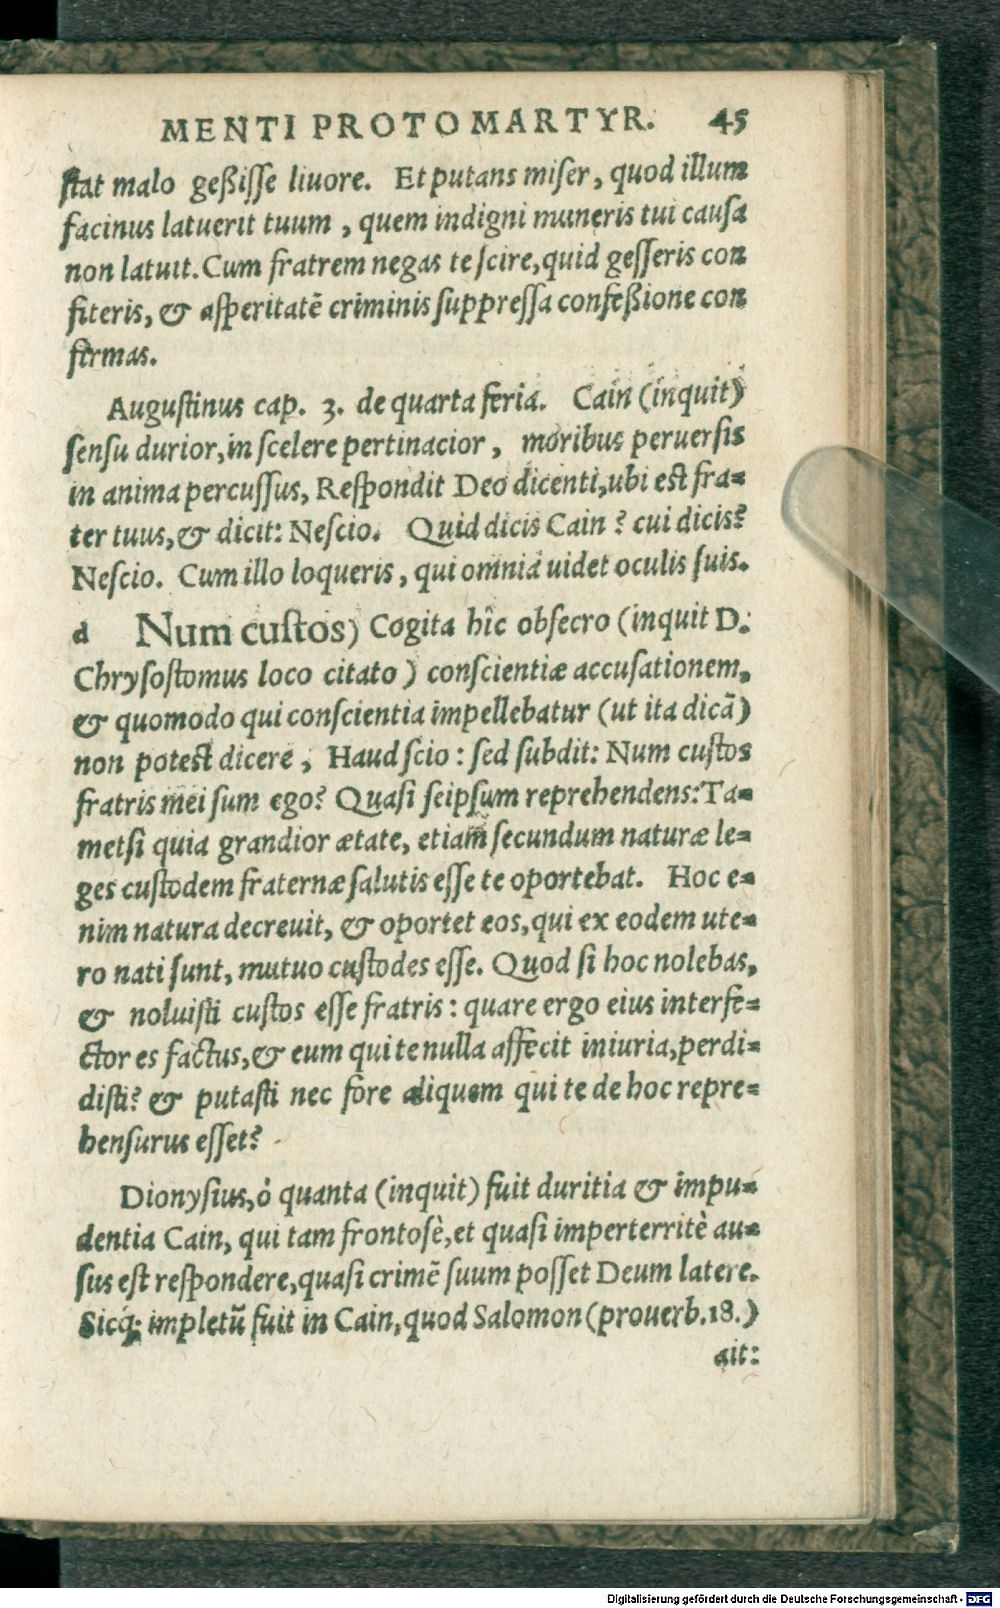 MENTI PROTOMARTYR. 45
ſtat malo geßiſſe liuore. Et putans miſer, quod illum
facinus latuerit tuum, quem indigni muneris tui cauſa
non latuit. Cum fratrem negas te ſcire, quid geſſeris con
fiteris, & aſperitatē criminis ſuppreſſa confeßione con
firmas.
Auguſtinus cap. 3. de quarta feria. Cain (inquit)
ſenſu durior, in ſcelere pertinacior, moribus peruerſis
in anima percuſſus, Reſpondit Deo dicenti, ubi eſt fra⸗
ter tuus, & dicit: Neſcio. Quid dicis Cain? cui dicis?
Neſcio. Cum illo loqueris, qui omnia uidet oculis ſuis.
d Num cuſtos) Cogita hîc obſecro (inquit D.
Chryſoſtomus loco citato) conſcientiæ accuſationem,
& quomodo qui conſcientia impellebatur (ut ita dicā)
non poteſt dicere, Haud ſcio: ſed ſubdit: Num cuſtos
fratris mei ſum ego? Quaſi ſeipſum reprehendens: Ta⸗
metſi quia grandior ætate, etiam ſecundum naturæ le⸗
ges cuſtodem fraternæ ſalutis eſſe te oportebat. Hoc e⸗
nim natura decreuit, & oportet eos, qui ex eodem ute⸗
ro nati ſunt, mutuo cuſtodes eſſe. Quod ſi hoc nolebas,
& noluiſti cuſtos eſſe fratris: quare ergo eius interfe⸗
ctor es factus, & eum qui te nulla affecit iniuria, perdi⸗
diſti? & putaſti nec fore aliquem qui te de hoc repre⸗
henſurus eſſet?
Dionyſius, ó quanta (inquit) fuit duritia & impu⸗
dentia Cain, qui tam frontoſè, et quaſi imperterritè au⸗
ſus eſt reſpondere, quaſi crimē ſuum poſſet Deum latere.
Sicq́; impletū fuit in Cain, quod Salomon (prouerb. 18.)
ait:
Digitalisierung gefördert durch die Deutsche Forschungsgemeinschaft - DFG